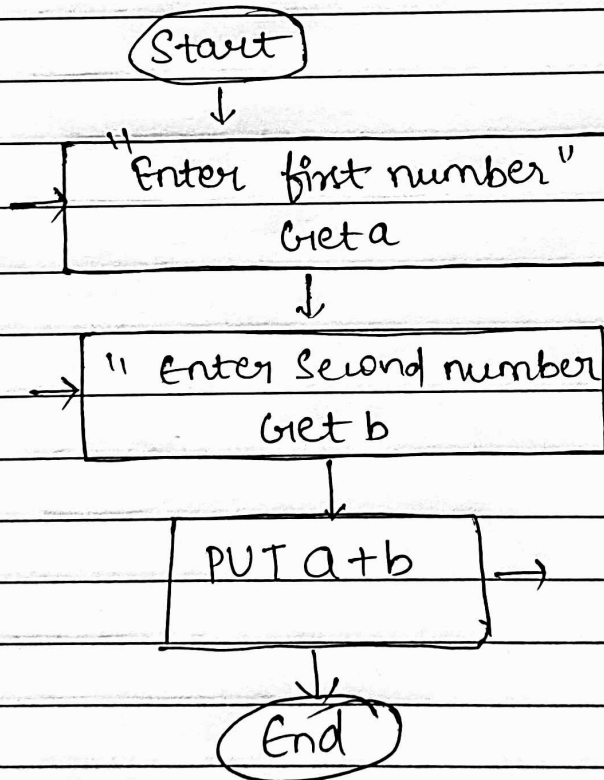 Start
"Enter first number"
Get a
" Enter Second number
Get b
PUT a+b
End